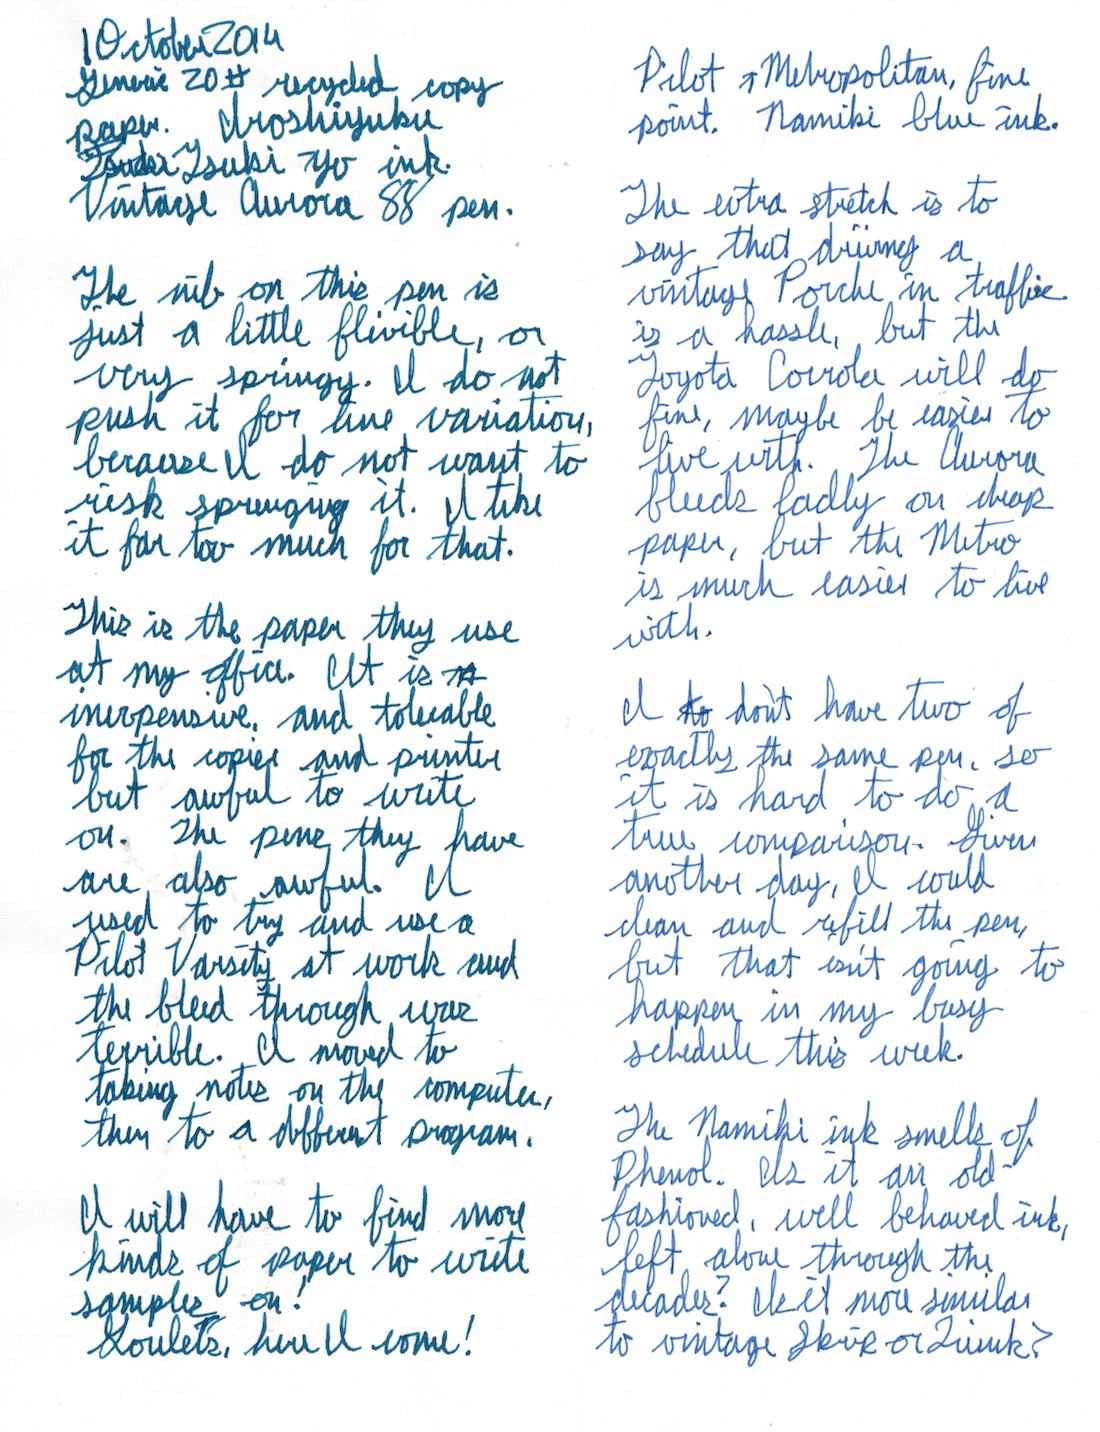 1 October 2014
Generic 20# recycled copy
paper. Iroshiyuku
Tsuki Yo ink.
Vintage Aurora 88 pen.
The nib on this pen is
just a little flixible, or
very springy. I do not
push it for line variation,
because I do not want to
risk sprunging it. I like
it far too much for that.
This is the paper they use
at my office. It is
inexpensive, and tolerable
for the copier and printer
but awful to write
on. The pens they have
are also awful. I
used to try and use a
Pilot Varsity at work and
the bleed through was
terrible. I moved to
taking notes on the computer,
then to a different program.
I will have to find more
kinds of paper to write
samples on!
Goulets, here I come!
Pilot Metropolitan, fine
point. Namiki blue ink.
The extra stretch is to
say that driving a
vintage Porche in traffic
is a hassle, but the
Toyota Corrola will do
fine, maybe be easier to
live with. The Aurora
bleeds badly on cheap
paper, but the Metro
is much easier to live
with.
I don't have two of
exactly the same pen, so
it is hard to do a
true comparison. Given
another day, I could
clean and refill the pen,
but that isn't going to
happen in my busy
schedule this week.
The Namiki ink smells of
Phenol. Is it an old-
fashioned, well behaved ink,
left alone through the
decades? Is it more similar
to vintage Skrip or Quink?